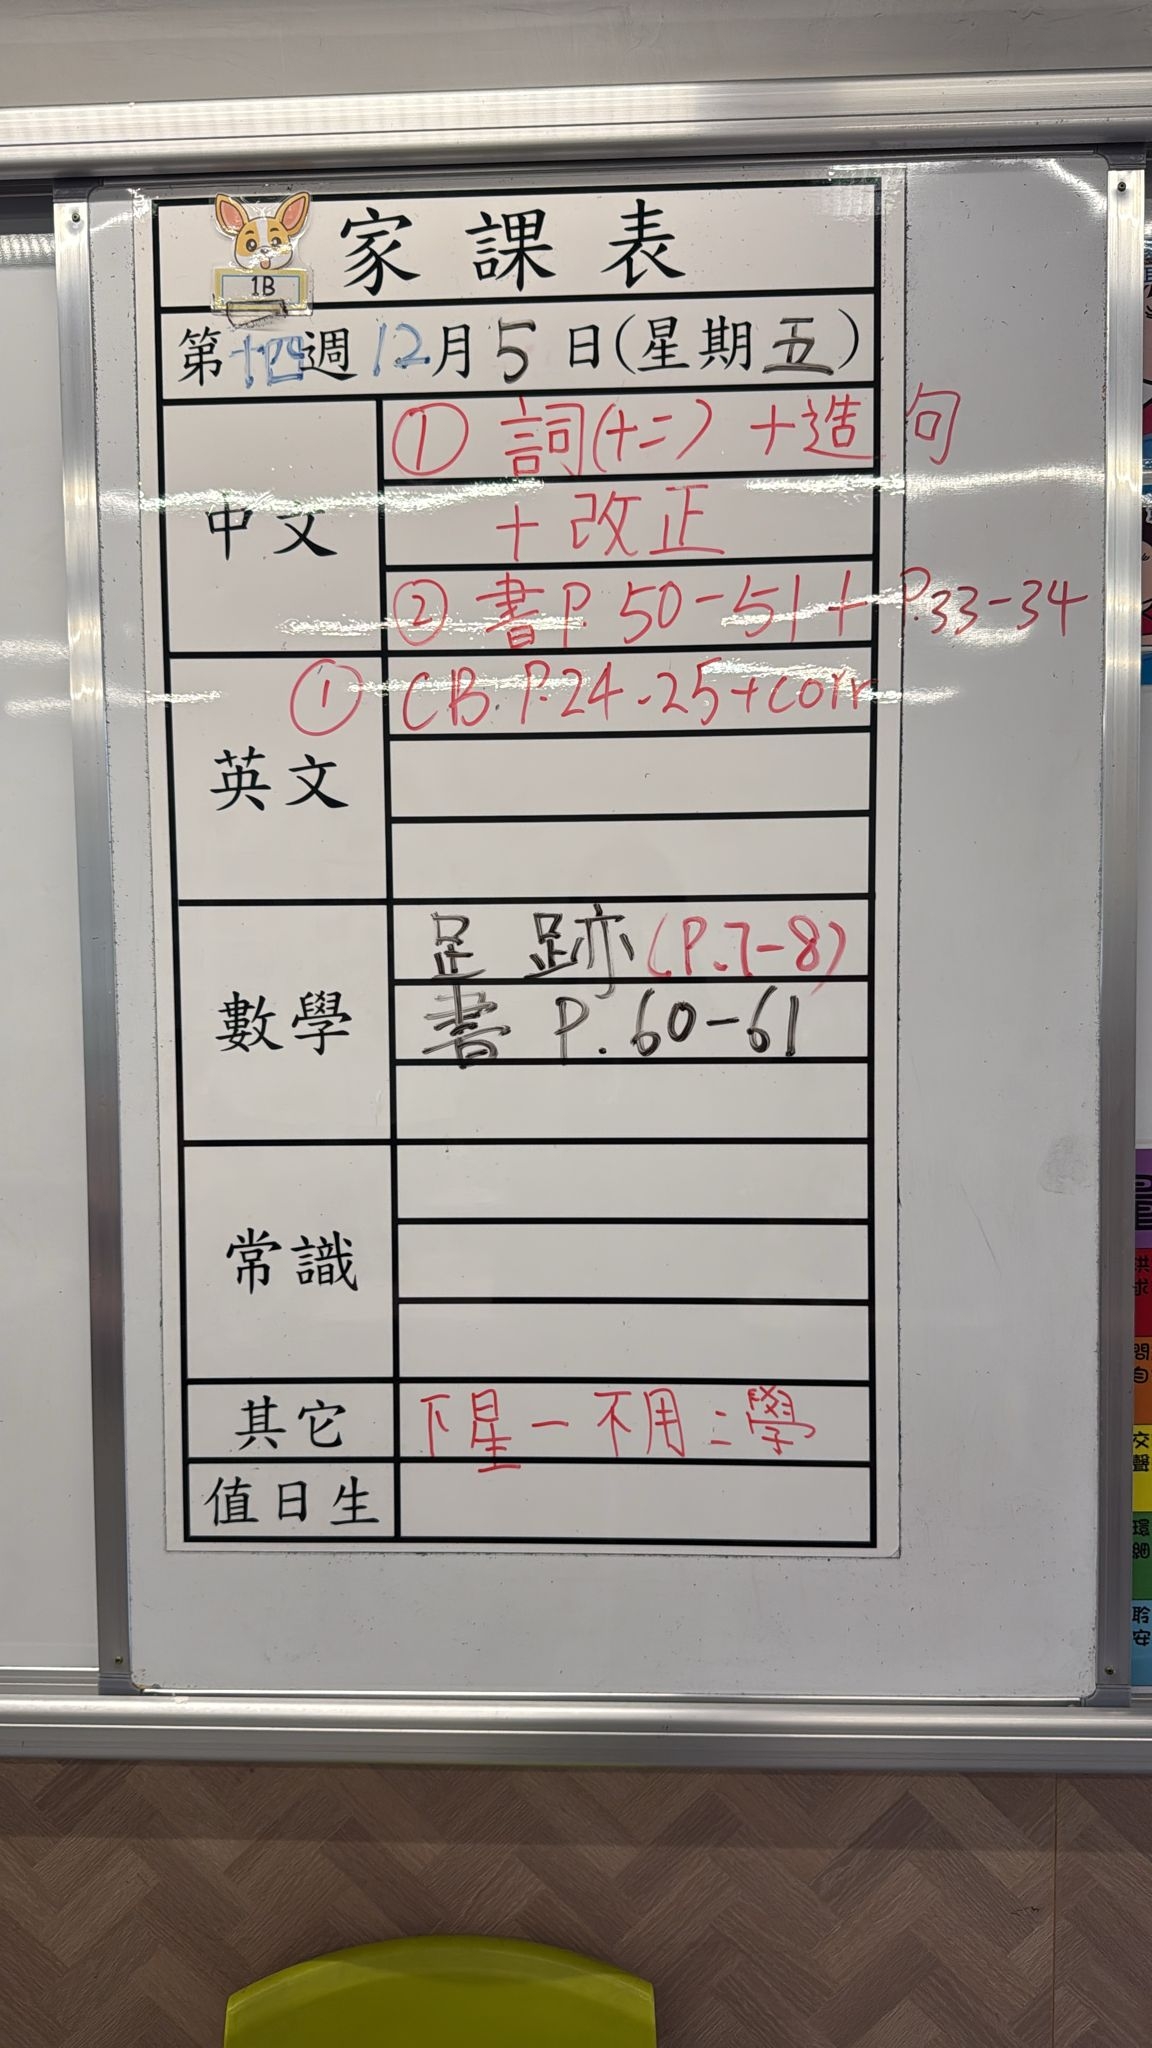 家課表
1B
第十四週12月5日(星期五)
中文
① 詞(十二) +造句
+改正
② 書P.50-51+P.33-34
英文
① CB.P.24-25+corr
數學
足跡(P.7-8)
書 P.60-61
常識
其它
下星一不用
學
值日生